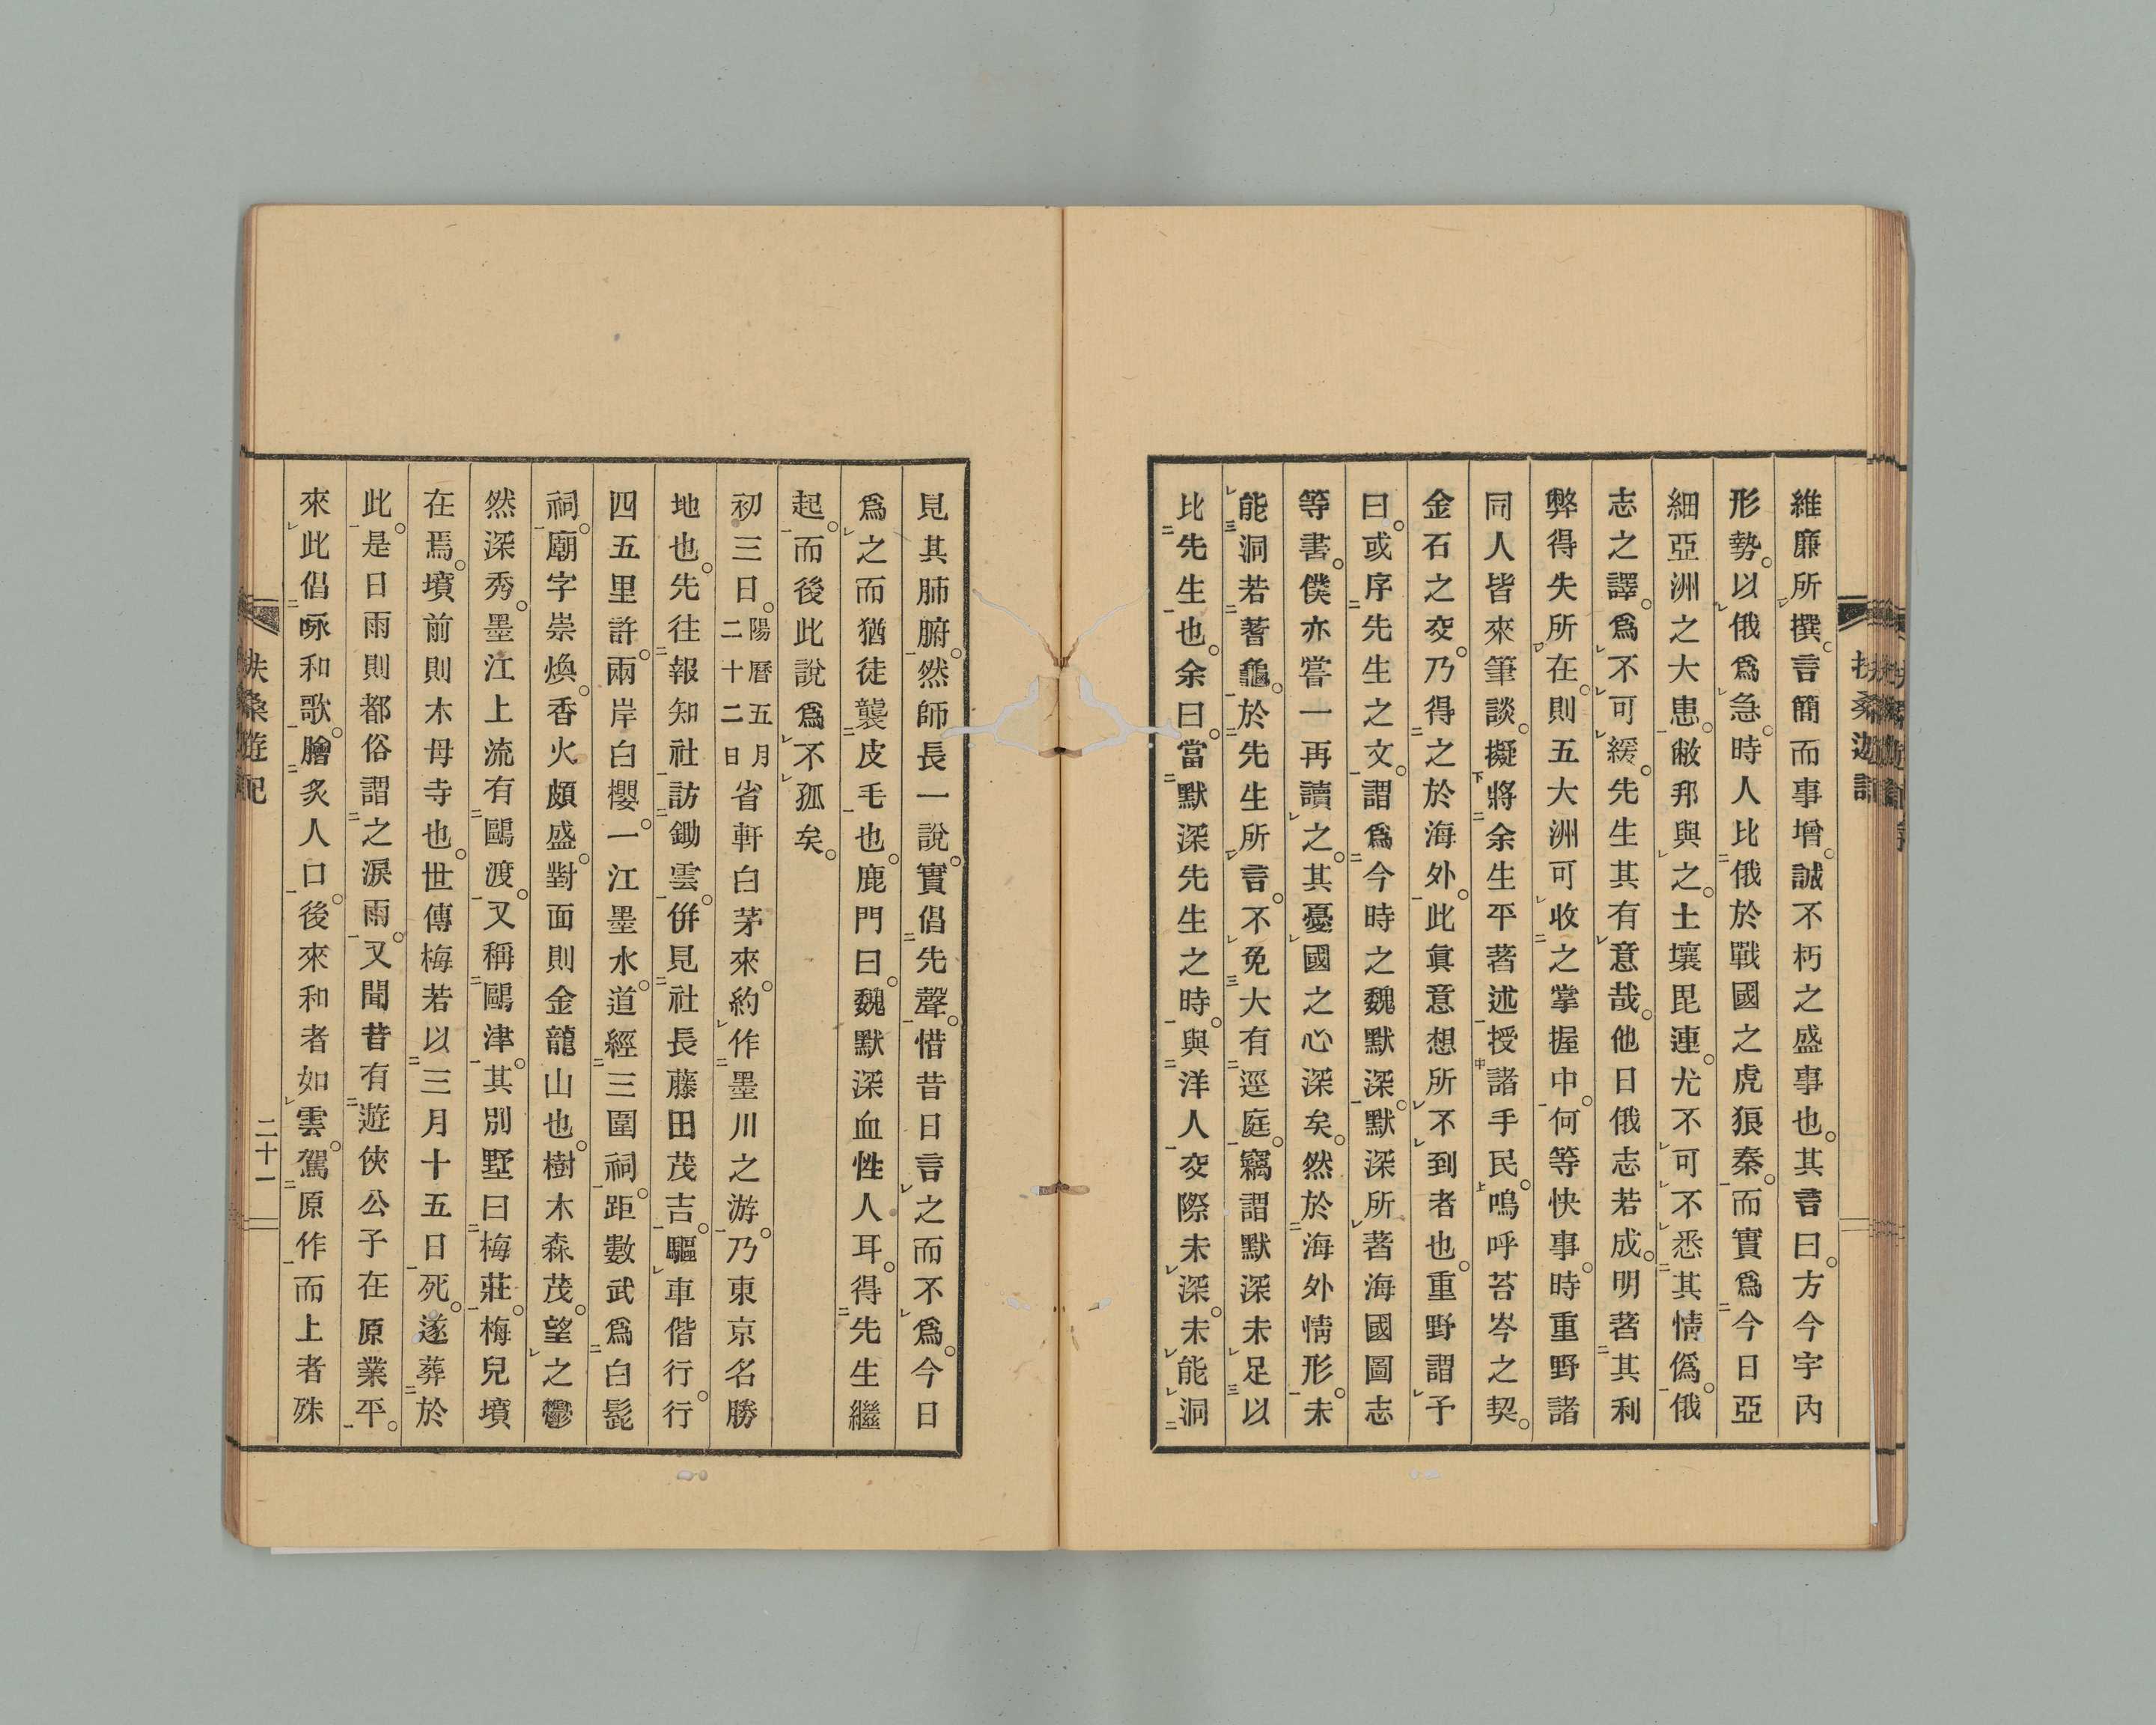 維廉所撰。言簡而事增。誠不朽之盛事也。其書曰。方今宇內
形勢。以俄爲急。時人比俄於戰國之虎狼秦。而實爲今日亞
細亞洲之大患。敝邦與之。土壤毘連。尤不可不悉其情僞。俄
志之譯。爲不可緩。先生其有意哉。他日俄志若成。明著其利
弊得失所在。則五大洲可收之掌握中。何等快事。時重野諸
同人皆來筆談。擬將余生平著述授諸手民。嗚呼苔岑之契。
金石之交。乃得之於海外。此眞意想所不到者也。重野謂予
曰。或序先生之文。謂爲今時之魏默深。默深所著海國圖志
等書。僕亦嘗一再讀之。其憂國之心深矣。然於海外情形。未
能洞若蓍龜。於先生所言。不免大有逕庭。竊謂默深未足以
比先生也。余曰。當默深先生之時。與洋人交際未深。未能洞
見其肺腑。然師長一說。實倡先聲。惜昔日言之而不爲。今日
爲之而猶徒襲皮毛也。鹿門曰。魏默深血性人耳。得先生繼
起。而後此說爲不孤矣。
初三日。陽曆五月二十二日省軒白茅來。約作墨川之游。乃東京名勝
地也。先往報知社訪鋤雲。併見社長藤田茂吉。驅車偕行。行
四五里許。兩岸白櫻。一江墨水。道經三圍祠。距數武爲白髭
祠。廟宇崇煥。香火頗盛。對面則金龍山也。樹木森茂。望之鬱
然深秀。墨江上流有鷗渡。又稱鷗津。其別墅曰梅莊。梅兒墳
在焉。墳前則木母寺也。世傳梅若以三月十五日死。遂葬於
此。是日雨則都俗謂之淚雨。又聞昔有遊俠公子在原業平。
來此倡咏和歌。膾炙人口。後來和者如雲。駕原作而上者殊
扶桑遊記
二十一